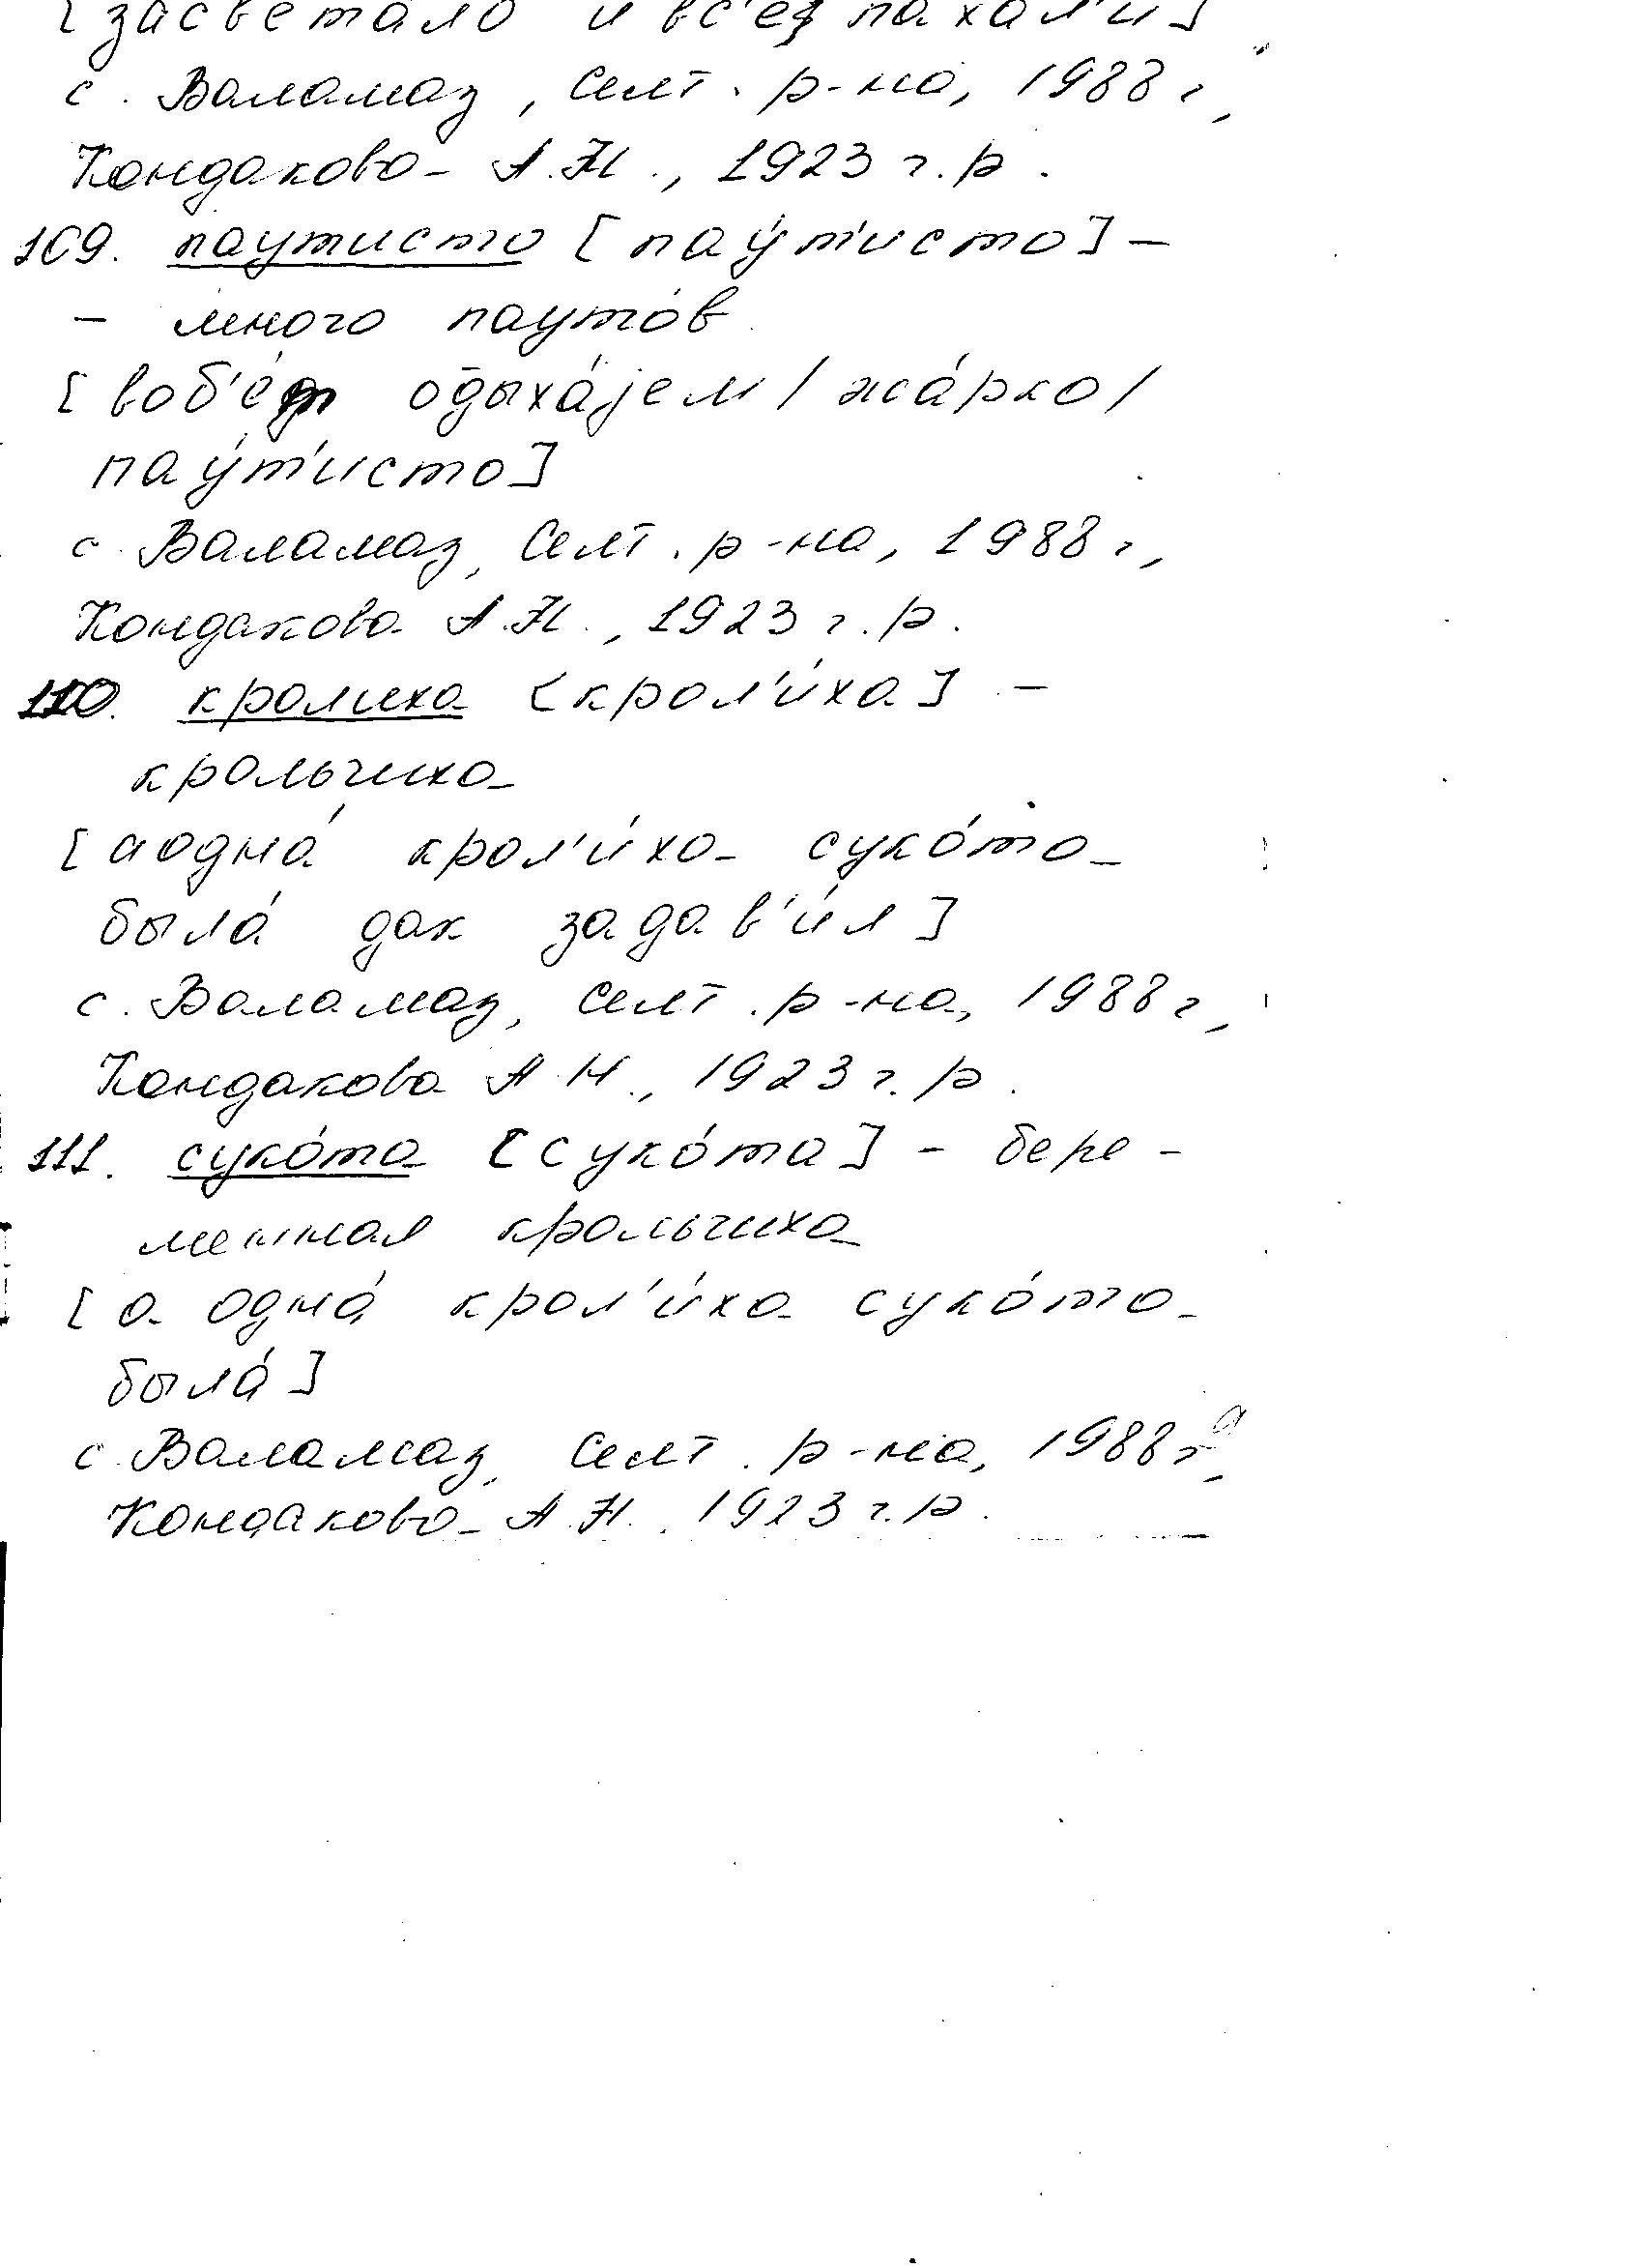 [засветало и вс'ех пахал'и]
с. Валамаз, Селт. р-на, 1988 г,
Кондакова А.Н., 1923 г.р.
109. паутисто [пау́т'исто] –
– много пауто́в
[воб'е́т о̄дыха́јем / жа́рко /
пау́т'исто]
с. Валамаз, Селт. р-на, 1988 г,
Кондакова А.Н., 1923 г.р.
110. кролиха [крол'и́ха] –
крольчиха
[аодна́ крол'и́ха суко́та
была́ дак задав'и́л]
с. Валамаз, Селт. р-на, 1988 г,
Кондакова А.Н., 1923 г.р.
111. суко́та [суко́та] – бере-
менная крольчиха
[а одна́ крол'и́ха суко́та
была́]
с. Валамаз, Селт. р-на, 1988 г,
Кондакова А.Н. 1923 г.р.